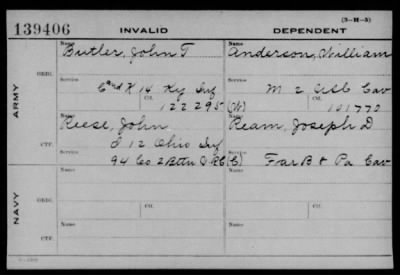 (3-M-3)
139406 INVALID DEPENDENT
ARMY
ORIG.
Name Butler, John T
Service C and K 14 Ky Inf
Ctf. 122295
Name Anderson, William
Service M 2 Cav
Ctf. 101770
(W)
CTF.
Name Reese, John
I 12 Ohio Inf
Service 94 Co 2 Battn
Name Ream, Joseph D
(C)
Service Far B + Pa Cav
NAVY
ORIG.
Name
Service
Ctf.
Name
Service
Ctf.
CTF.
Name
Service
Name
Service